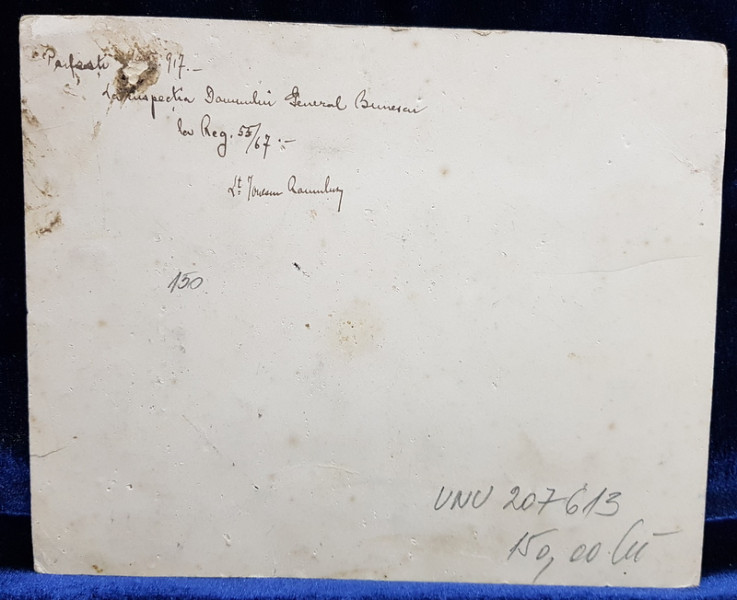 917.—
La inspecția Domnului General Bunescu
la Reg. 55/67 :—
Lt. Ionescu
150
UNU 207613
150,00 lei